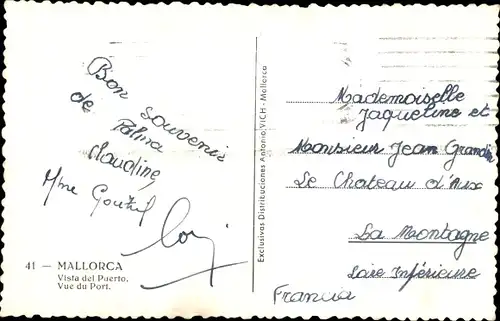 Bon souvenir
de Palma
Claudine
Mme
41 — MALLORCA
Vista del Puerto.
Vue du Port.
Exclusivas Distribuciones Antonio VICH - Mallorca
Mademoiselle
Jaqueline et
Monsieur Jean
Le Chateau d'Aux
La Montagne
Loire Inférieure
Francia